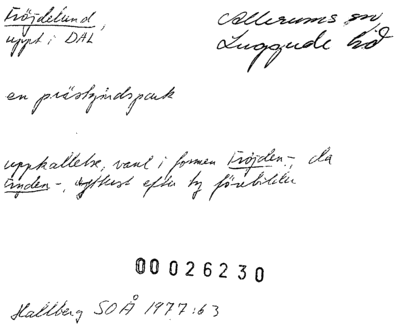 Fröjdelund,
uppt i DAL
Allerums sn
Luggude hd
en prästgårdspark
uppkallelse, vanl i formen Fröjden-, da
Fryden-, ytterst efter ty förebilder
00026230
Hallberg SOÅ 1977:63